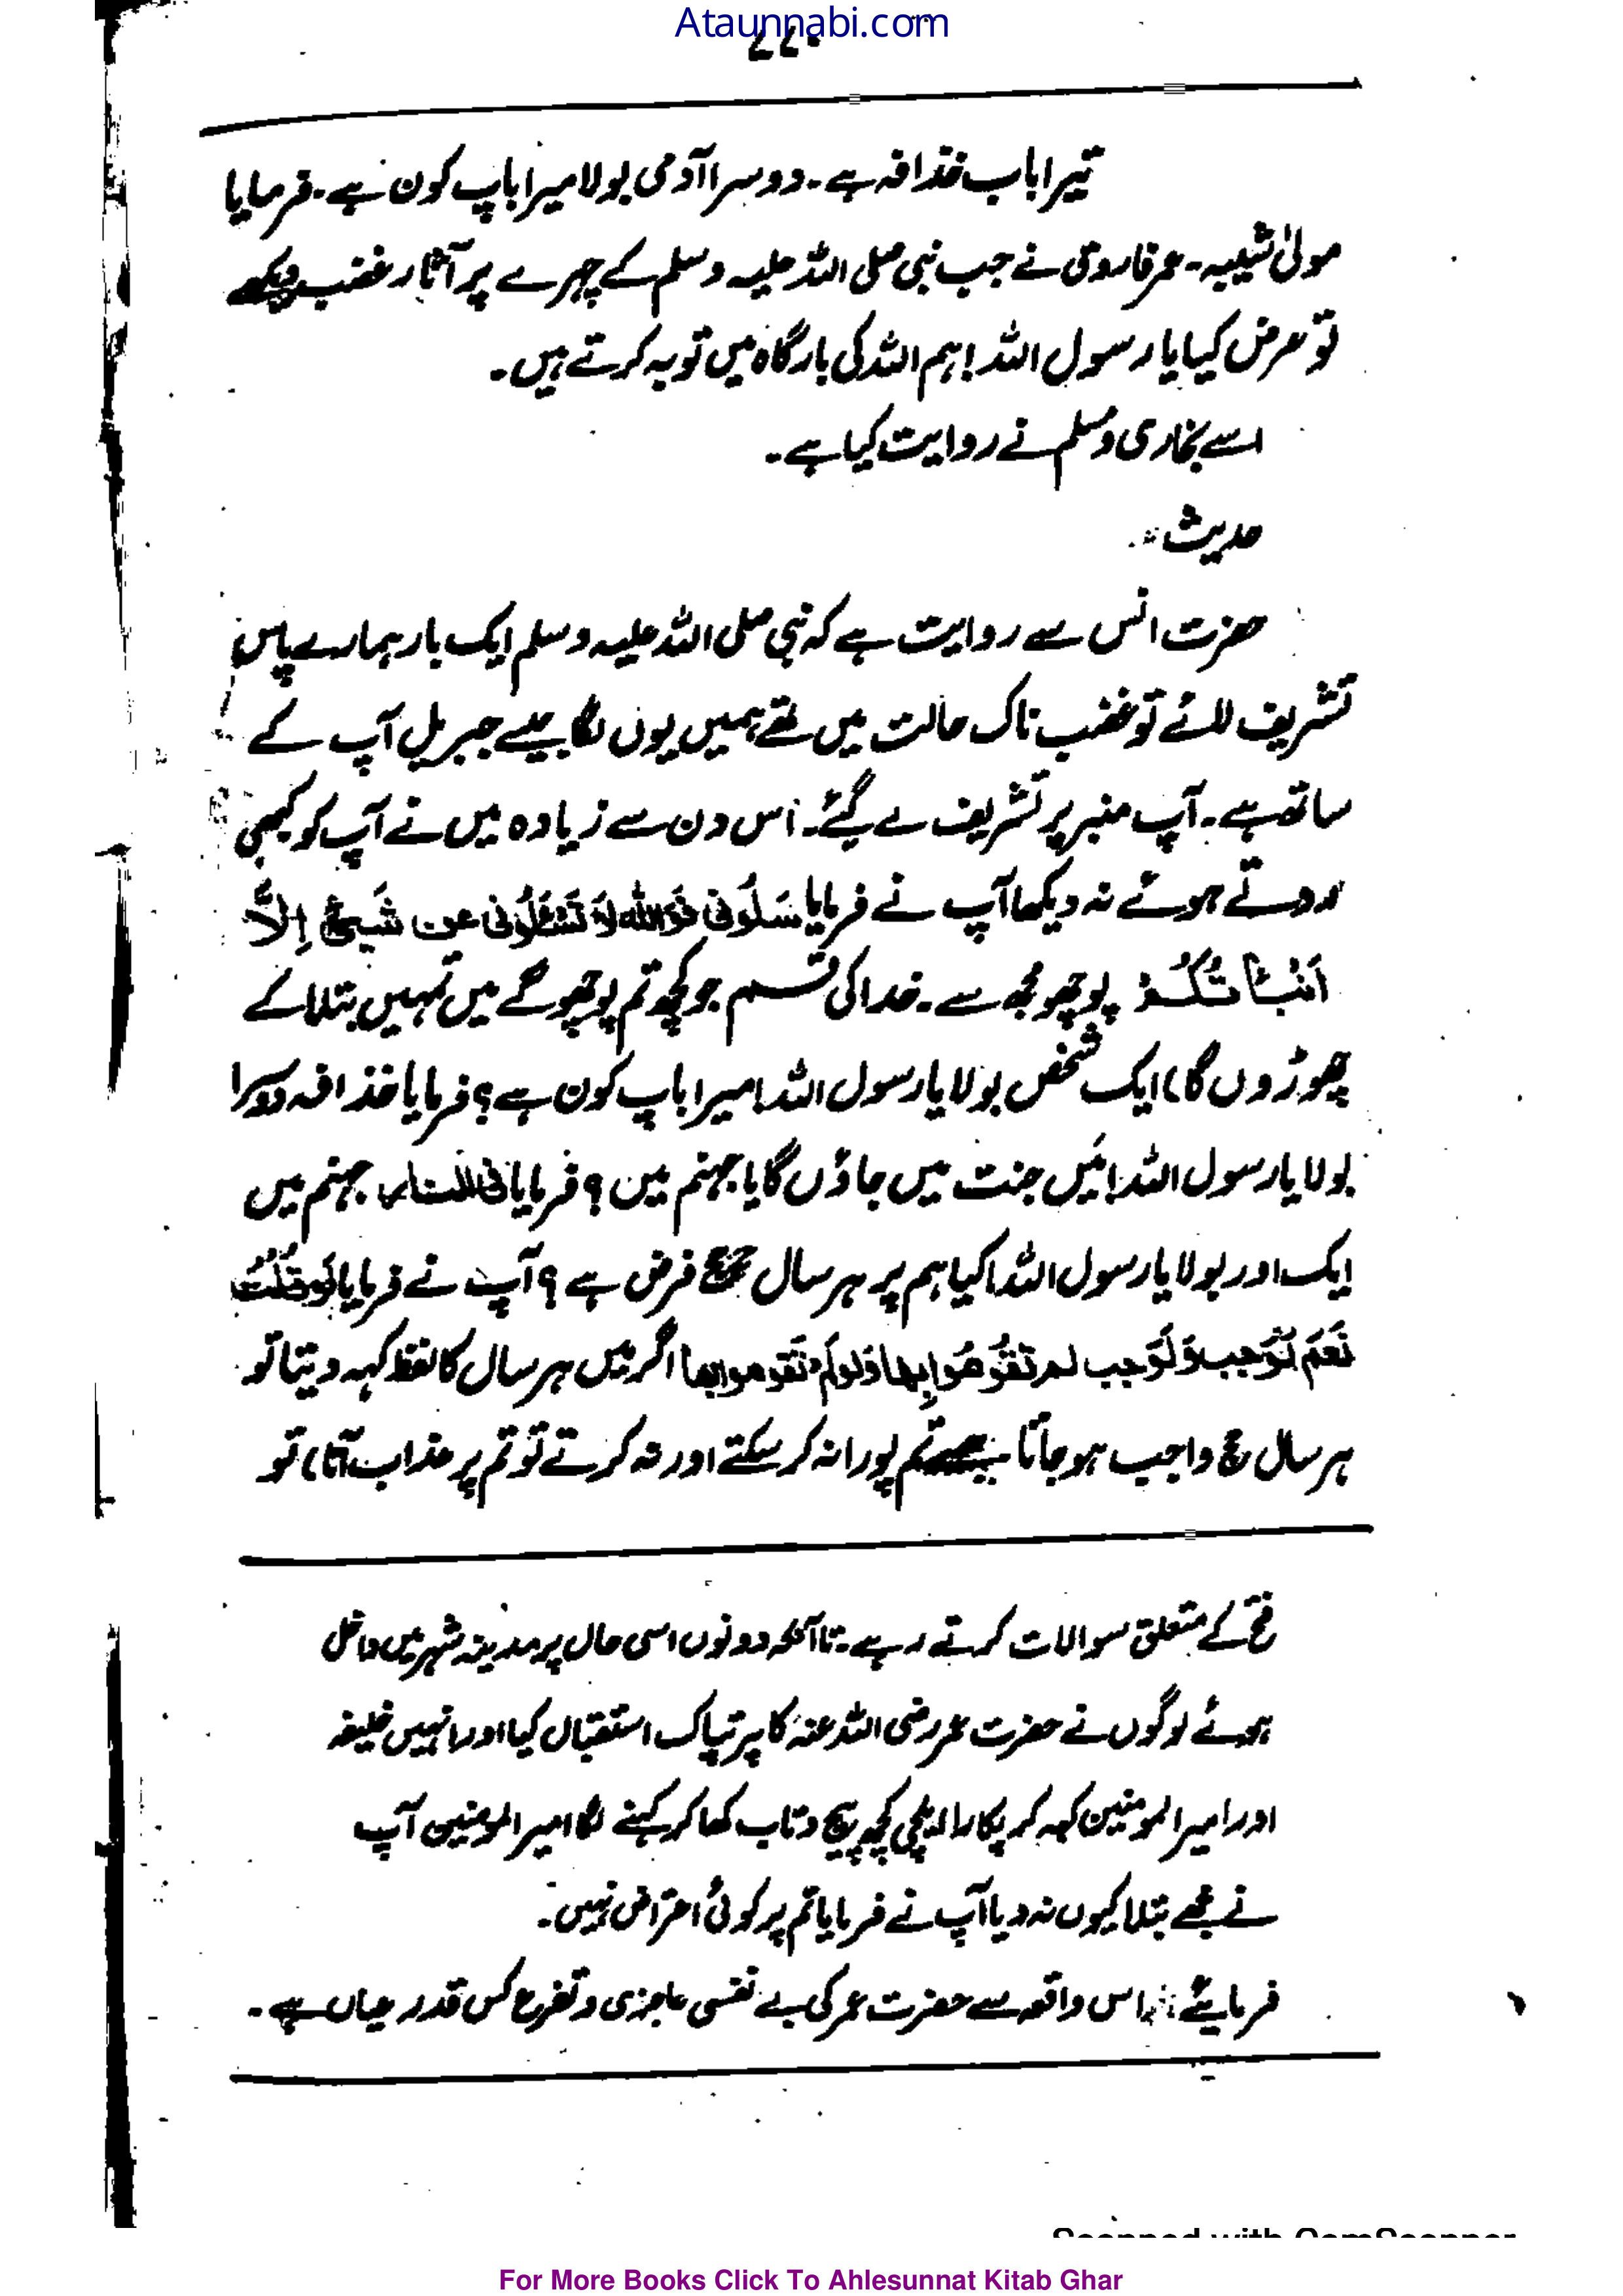 Ataunnabi.com
۷۷۰
تیرا باپ خذافہ ہے۔ دوسرا آدمی بولا میرا باپ کون ہے۔ فرمایا
مولیٰ شیبہ۔ عمر فاروق نے جب نبی صلی اللہ علیہ وسلم کے چہرے پر آثار غضب دیکھے
تو عرض کیا یا رسول اللہ! ہم اللہ کی بارگاہ میں توبہ کرتے ہیں۔
اسے بخاری و مسلم نے روایت کیا ہے۔
حدیث
حضرت انس سے روایت ہے کہ نبی صلی اللہ علیہ وسلم ایک بار ہمارے پاس
تشریف لائے تو غضب ناک حالت میں تھے ہمیں یوں لگا جیسے جبریل آپ کے
ساتھ ہے۔ آپ منبر پر تشریف لے گئے۔ اس دن سے زیادہ میں نے آپ کو کبھی
روتے ہوئے نہ دیکھا آپ نے فرمایا سَلُونی فَوَاللّٰہ لَا تَسْئَلُونی عن شَیءٍ اِلَّا
اَنْبَأتُکُمْ پوچھو مجھ سے۔ خدا کی قسم جو کچھ تم پوچھو گے میں تمہیں بتلا کے
چھوڑوں گا) ایک شخص بولا یا رسول اللہ! میرا باپ کون ہے؟ فرمایا خذافہ دوسرا
بولا یا رسول اللہ! میں جنت میں جاؤں گا یا جہنم میں؟ فرمایا فی النار جہنم میں
ایک اور بولا یا رسول اللہ! کیا ہم پر ہر سال حج فرض ہے؟ آپ نے فرمایا لَو قُلْتُ
نَعَمْ لَوَجَب وَلَو وَجب لم تَقُومُوا بِها وَلَو لَمْ تَقُوموا بها اگر میں ہر سال کا لفظ کہہ دیتا تو
ہر سال حج واجب ہو جاتا جسے تم پورا نہ کر سکتے اور نہ کرتے تو تم پر عذاب آتا) تو
فتح کے متعلق سوالات کرتے رہے۔ تا آنکہ دونوں اسی حال پر مدینہ شہر میں داخل
ہوئے لوگوں نے حضرت عمر رضی اللہ عنہ کا پرتپاک استقبال کیا اور انہیں خلیفہ
اور امیر المومنین کہہ کر پکارا ایلچی کچھ پیچ و تاب کھا کر کہنے لگا امیر المومنین آپ
نے مجھے بتلا کیوں نہ دیا آپ نے فرمایا تم پر کوئی اعتراض نہیں۔
فرمائیے اس واقعہ سے حضرت عمر کی بے نفسی عاجزی و تضرع کس قدر عیاں ہے۔
For More Books Click To Ahlesunnat Kitab Ghar